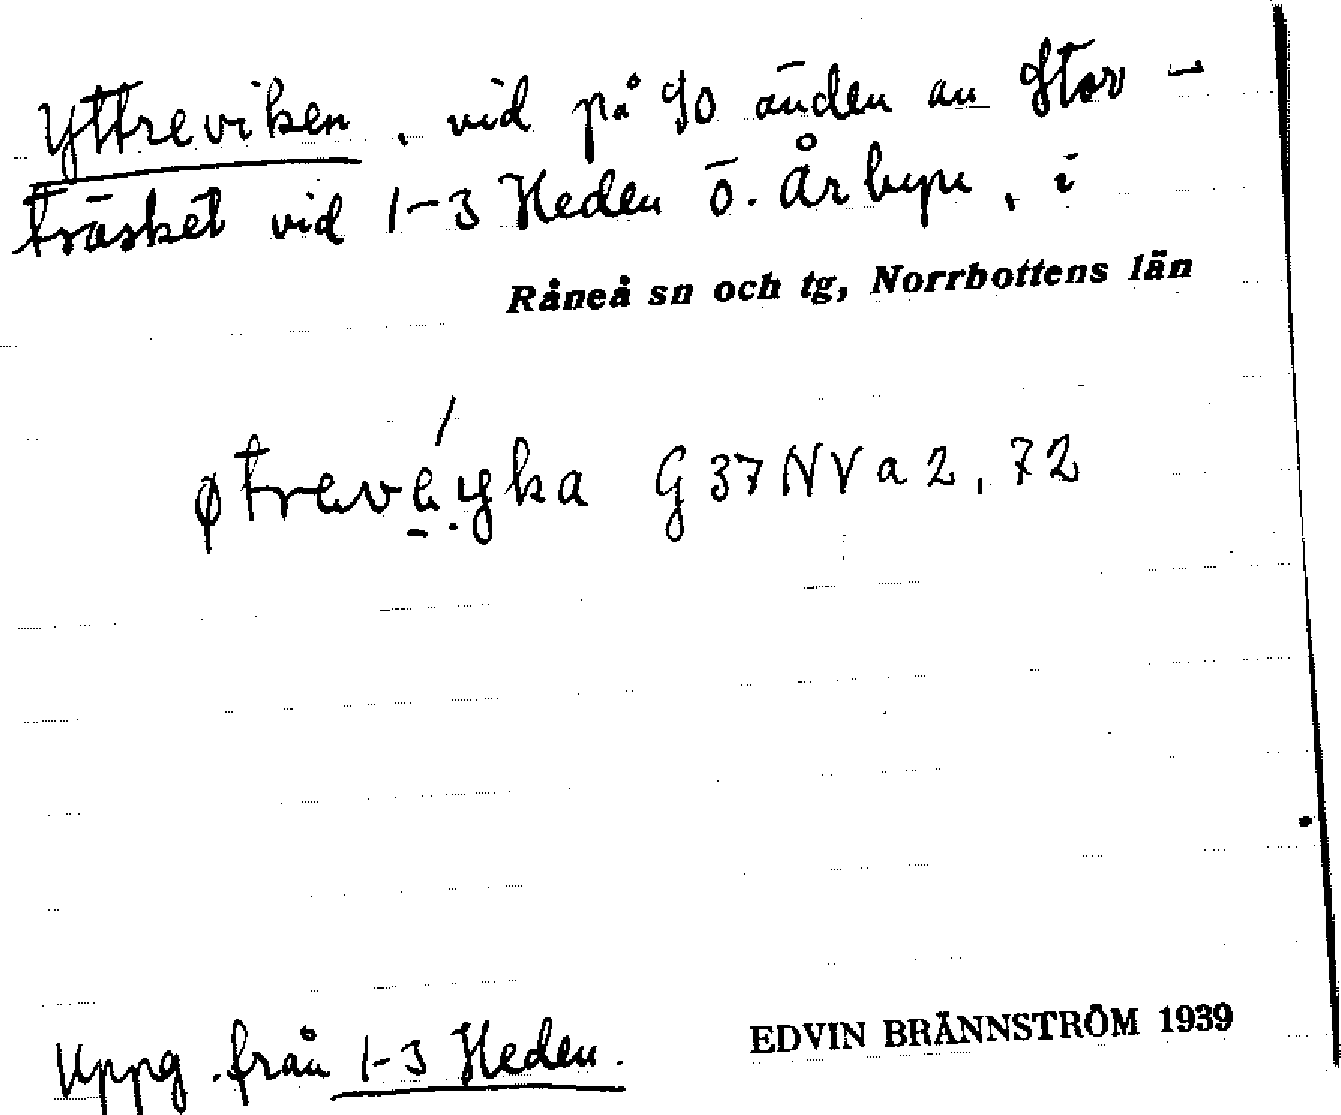 Yttreviken, vid på SO änden av Stor-
träsket vid 1-3 Heden o. Årbyn, i
Råneå sn och tg, Norrbottens län
øtrevé̱yka G37NVa2,72
Uppg. från 1-3 Heden.
EDVIN BRÄNNSTRÖM 1939